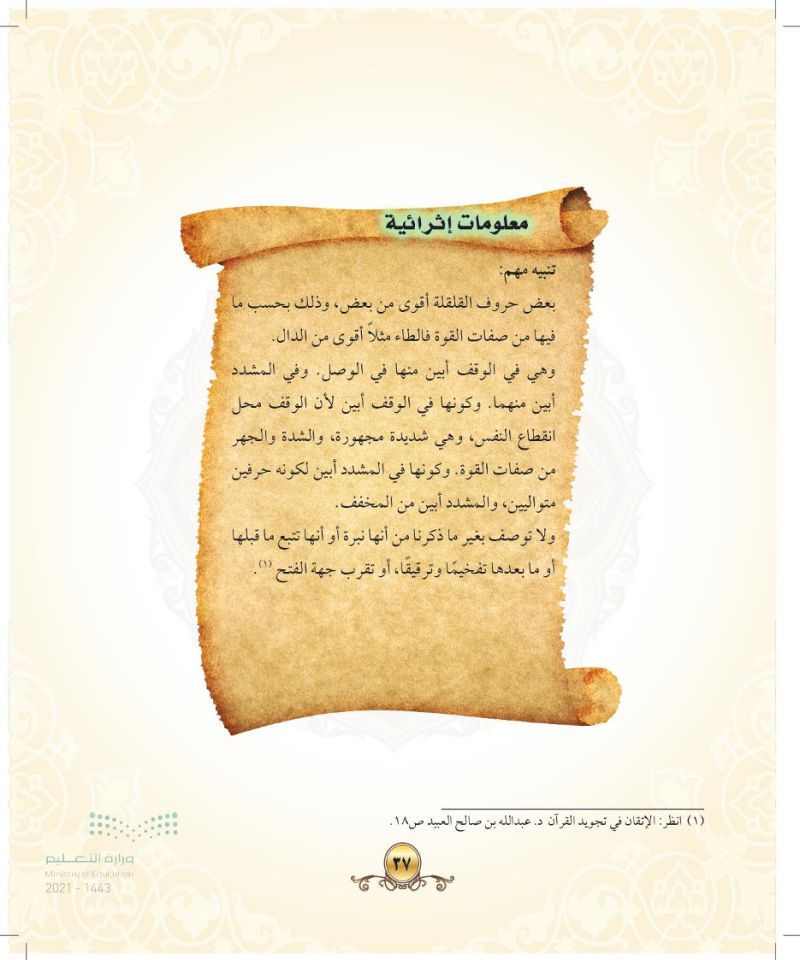 معلومات إثرائية
تنبيه مهم:
بعض حروف القلقلة أقوى من بعض، وذلك بحسب ما
فيها من صفات القوة فالطاء مثلاً أقوى من الدال.
وهي في الوقف أبين منها في الوصل. وفي المشدد
أبين منهما. وكونها في الوقف أبين لأن الوقف محل
انقطاع النفس، وهي شديدة مجهورة، والشدة والجهر
من صفات القوة. وكونها في المشدد أبين لكونه حرفين
متواليين، والمشدد أبين من المخفف.
ولا توصف بغير ما ذكرنا من أنها نبرة أو أنها تتبع ما قبلها
أو ما بعدها تفخيمًا وترقيقًا، أو تقرب جهة الفتح (١).
(١) انظر: الإتقان في تجويد القرآن د. عبدالله بن صالح العبيد ص١٨.
٣٧
وزارة التعليم
Ministry of Education
2021 - 1443